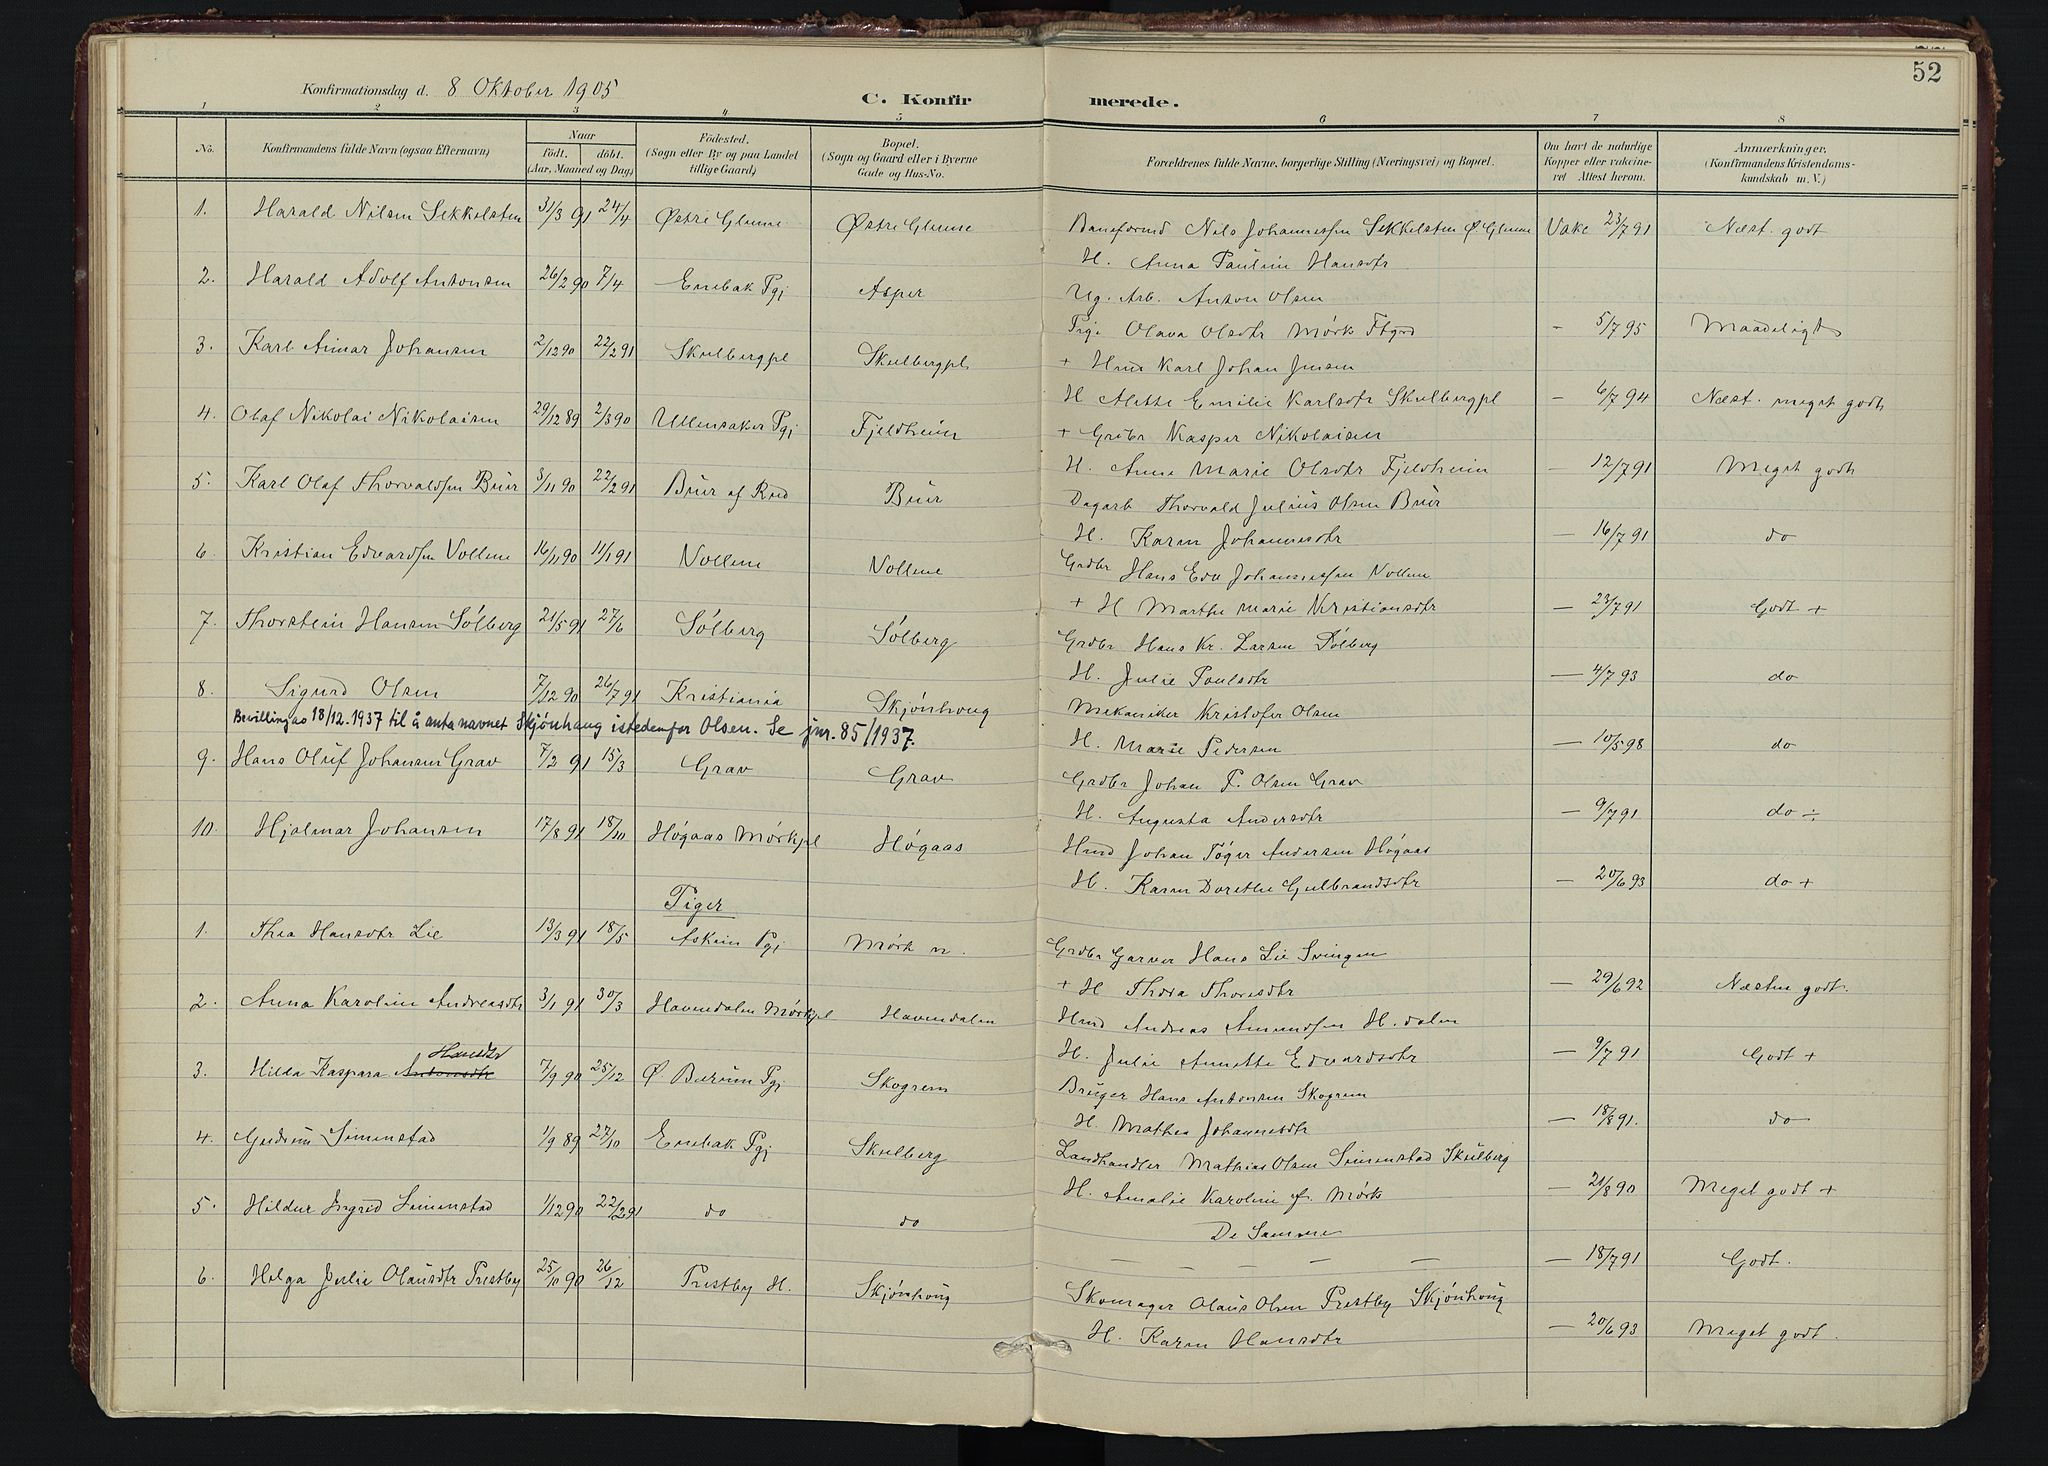 52
Konfirmationsdag d. 8 Oktober 1905
C. Konfirmerede.
1 2 3 4 5 6 7 8
No.
Konfirmandens fulde Navn (ogsaa Efternavn)
Naar
født. døbt.
(Aar, Maaned og Dag)
Födested.
(Sogn eller By og paa Landet
tillige Gaard)
Bopæl.
(Sogn og Gaard eller i Byerne
Gade og Hus-No.
Forældrenes fulde Navne, borgerlige Stilling (Næringsvei) og Bopæl.
Om havt de naturlige
Kopper eller vakcine-
ret Attest herom.
Anmærkninger.
(Konfirmandens Kristendoms-
kundskab m. V.)
1. Harald Nilsen Sekkelsten 31/3 91 24/4 Østre Glenne Østre Glenne Baneformd Nils Johannessen Sekkelsten Ø Glenne Vake 23/7 91 Næst. godt
H. Anna Pauline Hansdtr
2. Harald Adolf Antonsen 26/2 90 7/4 Enebak Pgj Asper Ug. Arb. Anton Olsen
Pige Olava Olsdtr Mørk - 5/7 95 Maadeligt
3. Karl Aimar Johansen 2/12 90 22/2 91 Skulbergpl Skulbergpl + Hmd Karl Johan Jensen
H Alette Emilie Karlsdtr Skulbergpl - 6/7 94 Næst. meget godt
4. Olaf Nikolai Nikolaisen 29/12 89 2/3 90 Ullensaker Pgj Fjeldheim + Grdbr Kasper Nikolaisen
H. Anne Marie Olsdtr Fjeldheim - 12/7 91 Meget godt
5. Karl Olaf Thorvaldsen Buer 3/11 90 22/2 91 Buer af Rud Buer Dagarb Thorvald Julius Olsen Buer
H. Karen Johannesdtr - 16/7 91 do
6. Kristian Edvardsen Vollene 16/11 90 11/1 91 Vollene Vollene Grdbr Hans Edv Johannessen Vollene
+ H Marthe Marie Kristiansdtr - 23/7 91 Godt +
7. Thorstein Hansen Sølberg 21/5 91 27/6 Sølberg Sølberg Grdbr Hans Kr. Larsen Sølberg
H. Julie Paulsdtr - 4/7 93 do
8. Sigurd Olsen 7/12 90 26/7 91 Kristiania Skjønhoug Mekaniker Kristofer Olsen
Bevilling as 18/12.1937 til å anta navnet Skjønhaug istedenfor Olsen. Se jnr. 85/1937.
H. Marie Pedersen - 10/5 98 do
9. Hans Oluf Johansen Grav 7/2 91 15/3 Grav Grav Grdbr Johan P. Olsen Grav
H. Augusta Andersdtr - 9/7 91 do ÷
10. Hjalmar Johansen 17/8 91 18/10 Høgaas Mørkpl Høgaas Hmd Johan Tøger Andersen Høgaas
H. Karen Dorethe Gulbrandsdtr - 20/6 93 do +
Piger
1. Thea Hansdtr Lie 13/3 91 18/5 Askim Pgj Mørk n. Grdbr Garver Hans Lie Svingen
+ H Thora Thoresdtr - 29/6 92 Næsten godt.
2. Anna Karoline Andreasdtr 3/1 91 30/3 Havendalen Mørkpl Havendalen Hmd Andreas Amundsen H.dalen
H. Julie Annette Edvardsdtr - 9/7 91 Godt +
3. Hilda Kaspara Antonsdtr Hansdtr 7/9 90 25/12 Ø. Bærum Pgj Skogrem Bruger Hans Antonsen Skogrem
H. Mathea Johannesdtr - 18/8 91. do
4. Gudrun Simenstad 1/9 89 27/10 Enebak Pgj Skulberg Landhandler Mathias Olsen Simenstad Skulberg
H. Amalie Karoline f. Mørk - 21/8 90 Meget godt +
5. Hildur Ingrid Simenstad 1/12 90 22/2 91 do do De Samme
- - - - - 18/7 91 Godt.
6. Helga Julie Olausdtr Prestby 25/10 90 26/12 Prestby H. Skjønhoug Skomager Olaus Olsen Prestby Skjønhoug
H. Karen Hansdtr - 20/6 93 Meget godt.